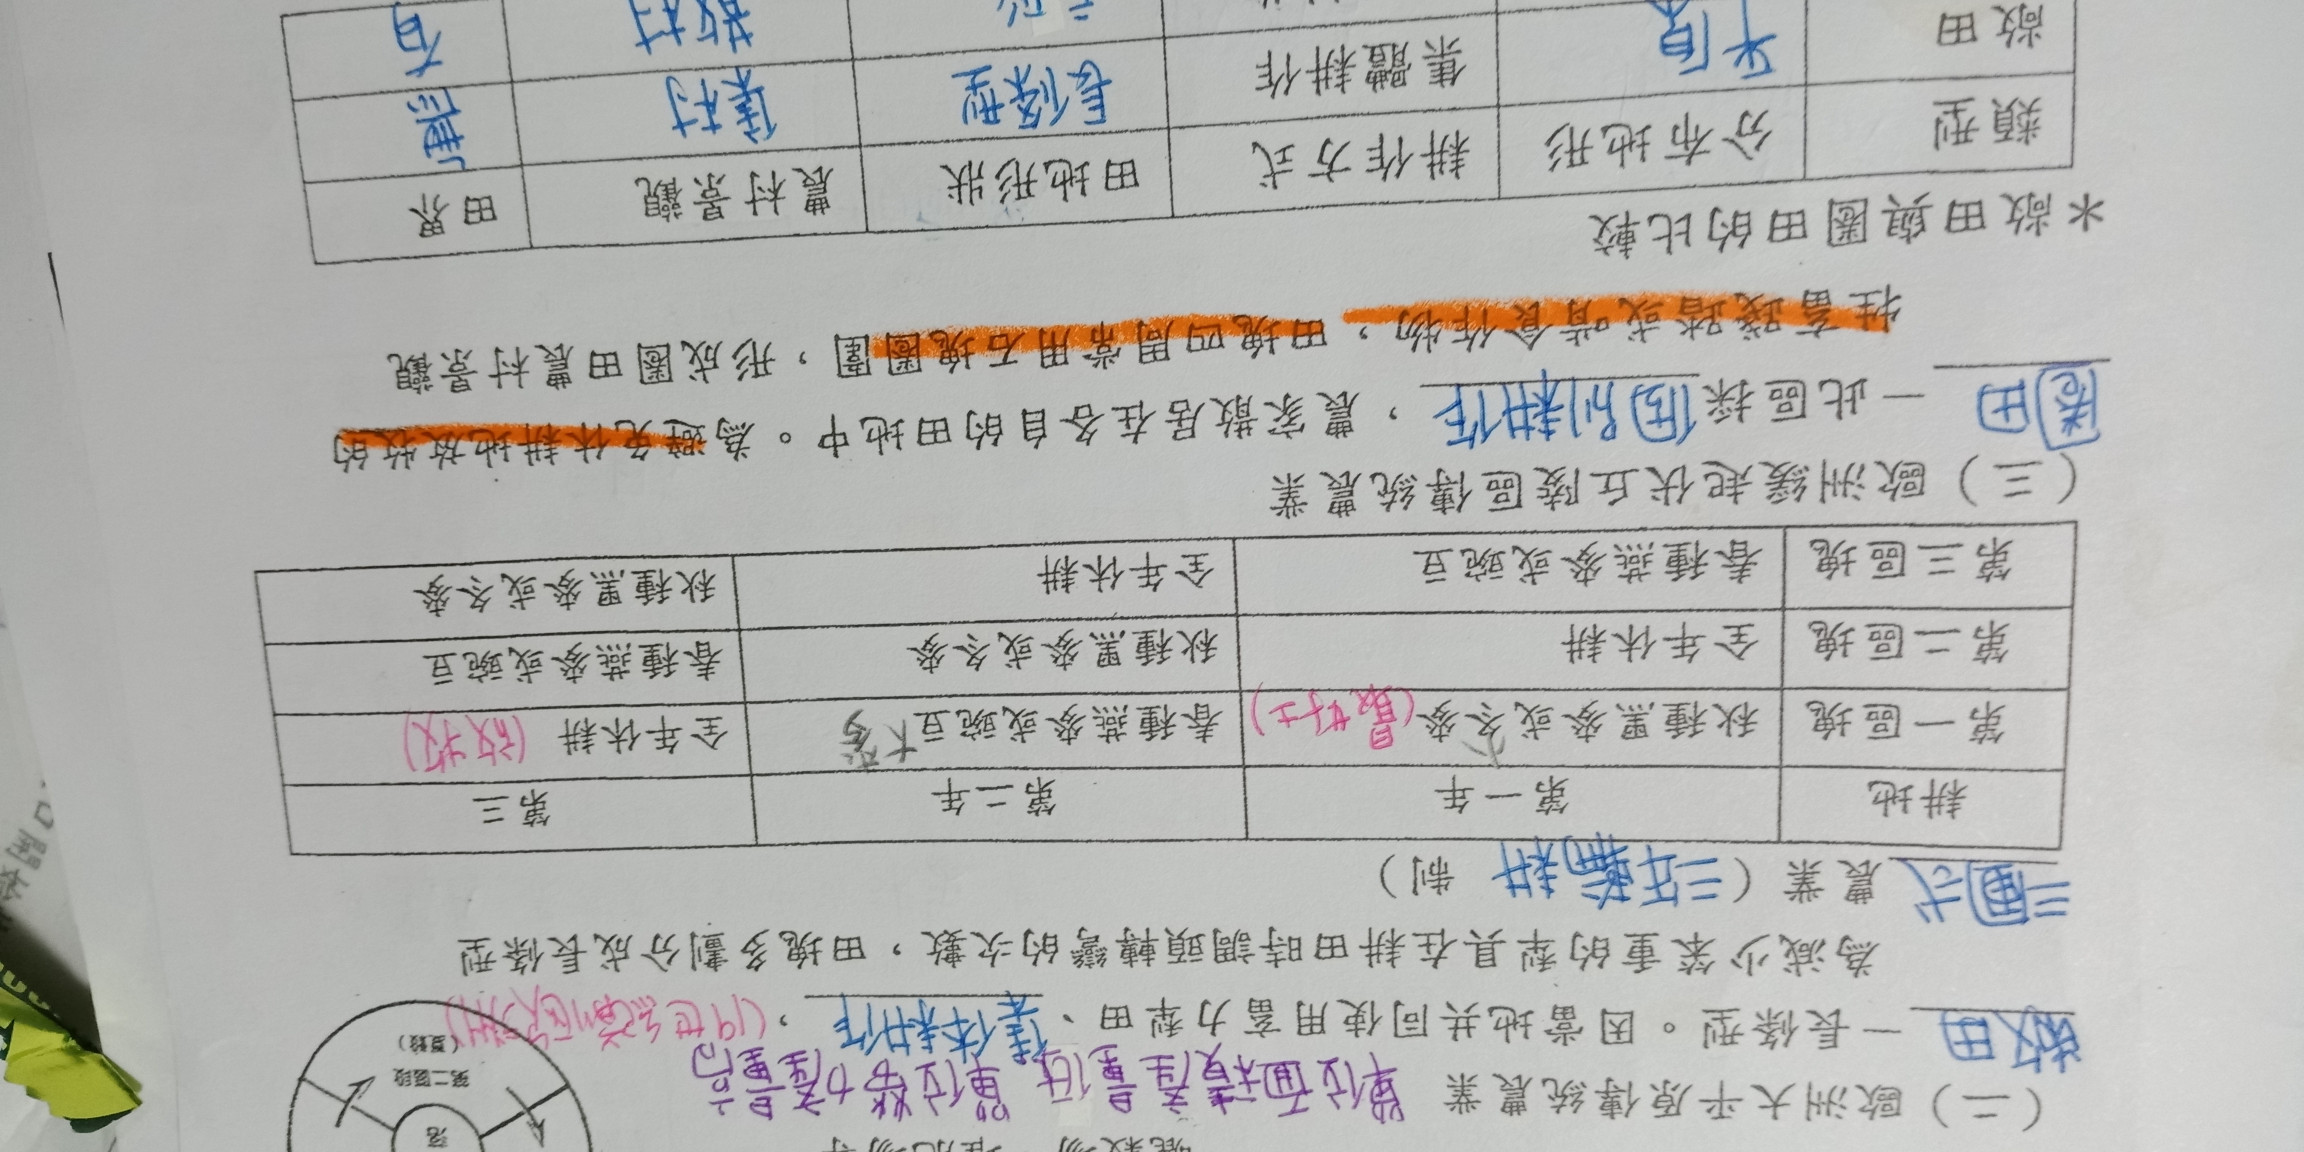 (二)歐洲大平原傳統農業 單位面積產量低 單位勞力產量高
敞田—長條型。因當地共同使用畜力犁田、集体耕作,(19世紀
為減少笨重的犁具在耕田時調頭轉彎的次數,田塊多劃分成長條型
第二區段
(夏穀)
三圃式農業(三年輪耕制)
耕地 第一年 第二年 第三
第一區塊 秋種黑麥或冬麥(最好土) 春種燕麥或豌豆 全年休耕(放牧)
小 大麥
第二區塊 全年休耕 秋種黑麥或冬麥 春種燕麥或豌豆
第三區塊 春種燕麥或豌豆 全年休耕 秋種黑麥或冬麥
(三)歐洲緩起伏丘陵區傳統農業
圈田—此區採個別耕作,農家散居在各自的田地中。為避免休耕地放牧的
牲畜踐踏或啃食作物,田塊四周常用石塊圈圍,形成圈田農村景觀
*敞田與圈田的比較
類型 分布地形 耕作方式 田地形狀 農村景觀 田界
敞田 平原 集體耕作 長條型 集村 無
散村 有